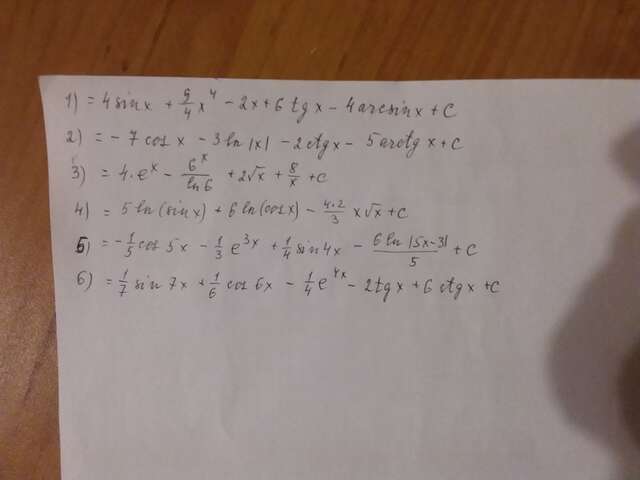 1) = 4 sin x + 9/4 x⁴ - 2x + 6 tg x - 4 arcsin x + C
2) = - 7 cos x - 3 ln |x| - 2 ctg x - 5 arctg x + C
3) = 4 · eˣ - 6ˣ/ln 6 + 2√x + 8/x + C
4) = 5 ln (sin x) + 6 ln (cos x) - 4·2/3 x√x + C
5) = - 1/5 cos 5x - 1/3 e³ˣ + 1/4 sin 4x - 6 ln |5x-3|/5 + C
6) = 1/7 sin 7x + 1/6 cos 6x - 1/4 e⁴ˣ - 2 tg x + 6 ctg x + C